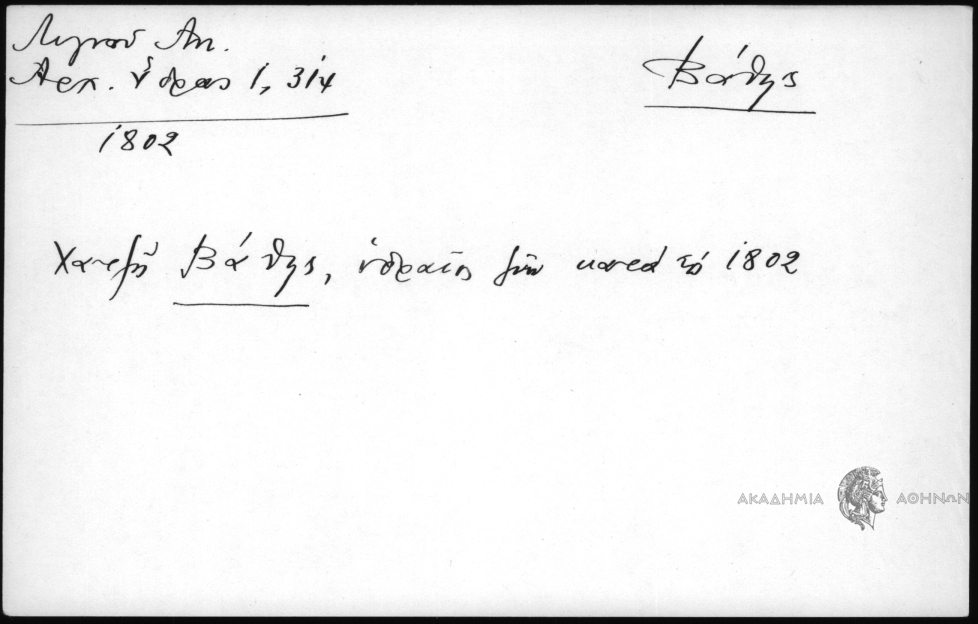 Λιγνού Αν.
Αρχ. Ύδρας 1, 314
1802
Βάθης
Χατζῆ Βάθης, ὑδραῖος ζῶν κατά τό 1802
ΑΚΑΔΗΜΙΑ ΑΘΗΝΩΝ